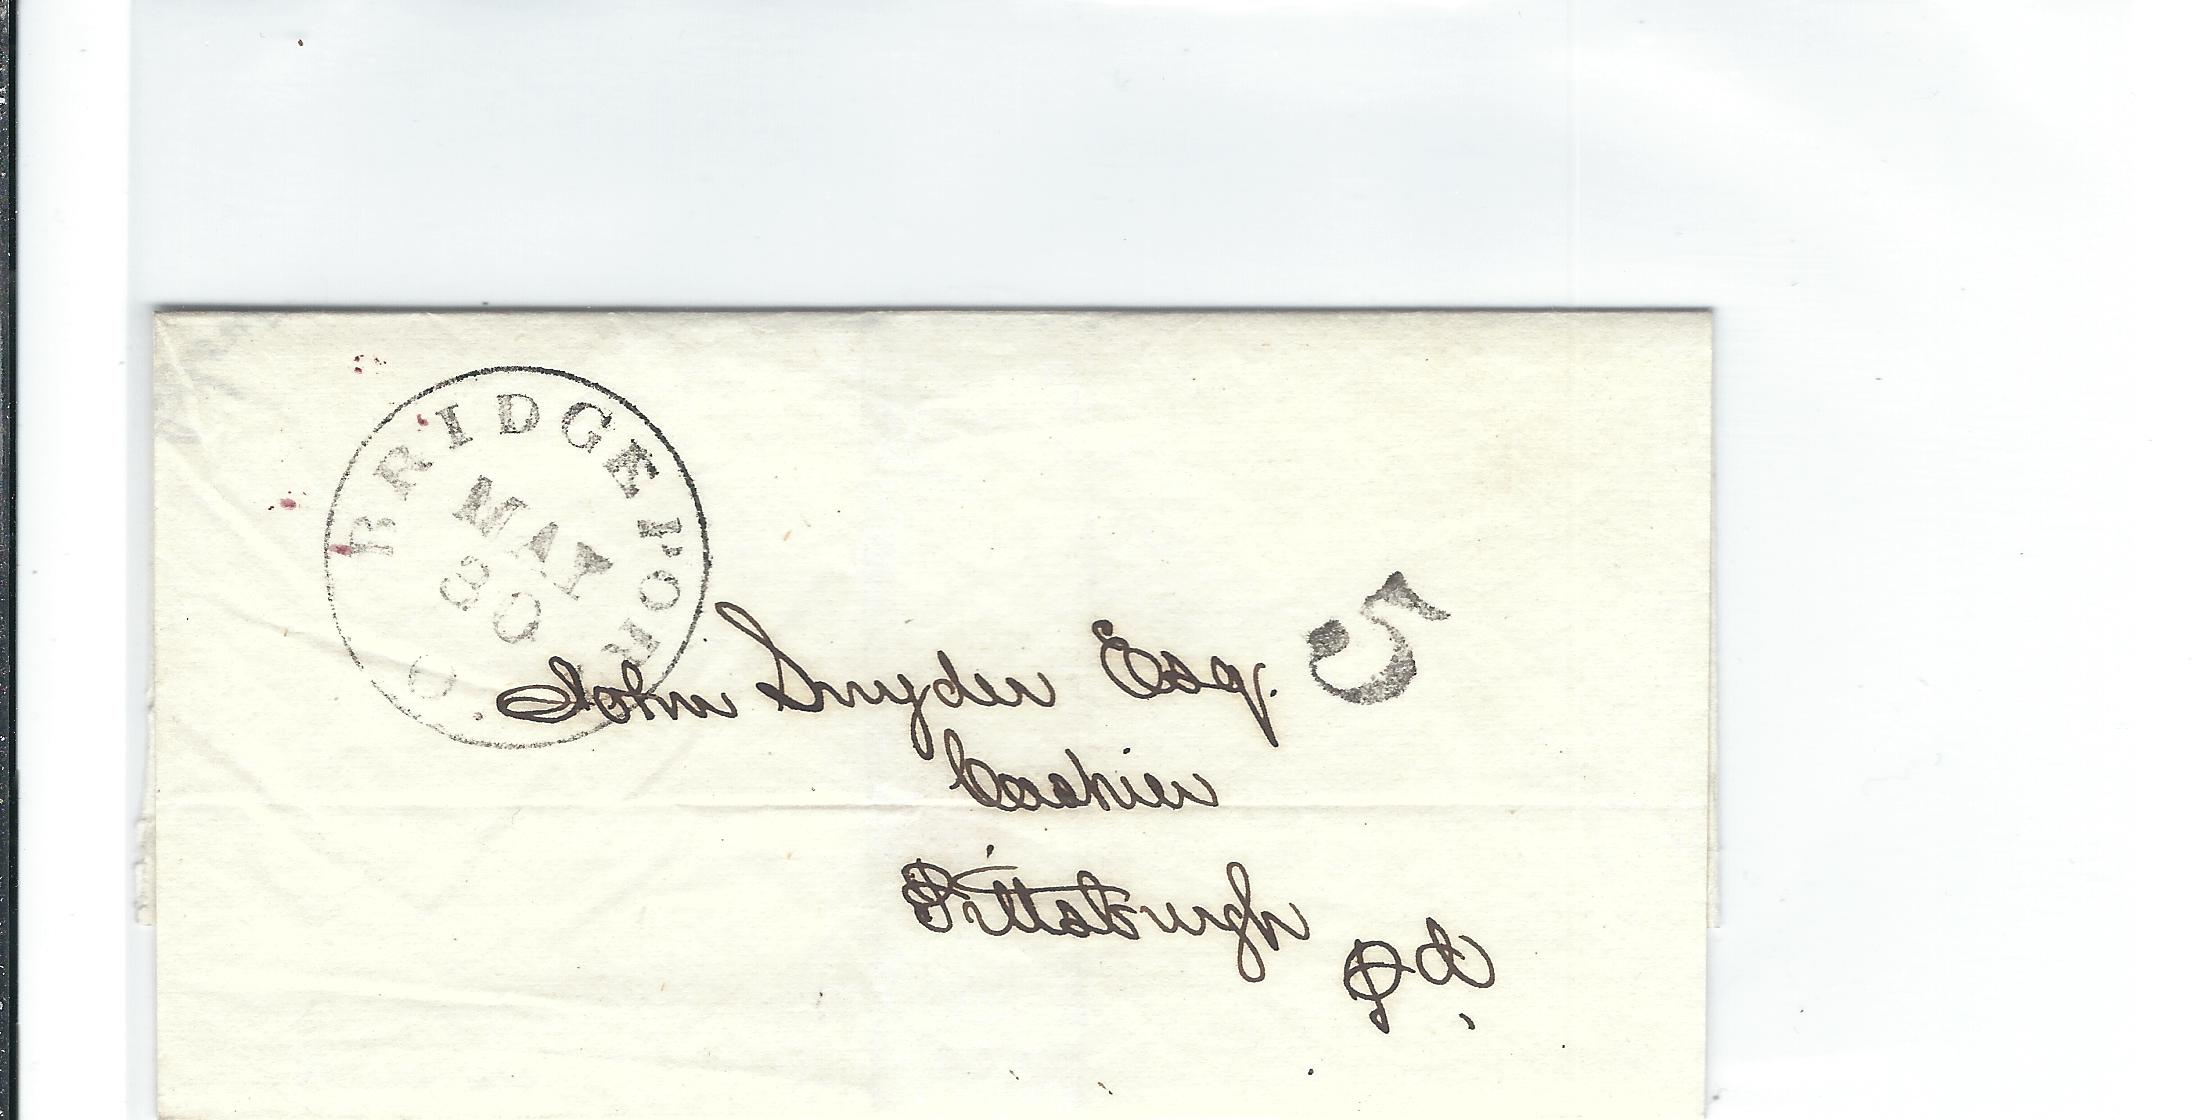 BRIDGEPORT O.
MAY
30
5
John Snyder Esq.
Cashier
Pittsburgh
Pa,